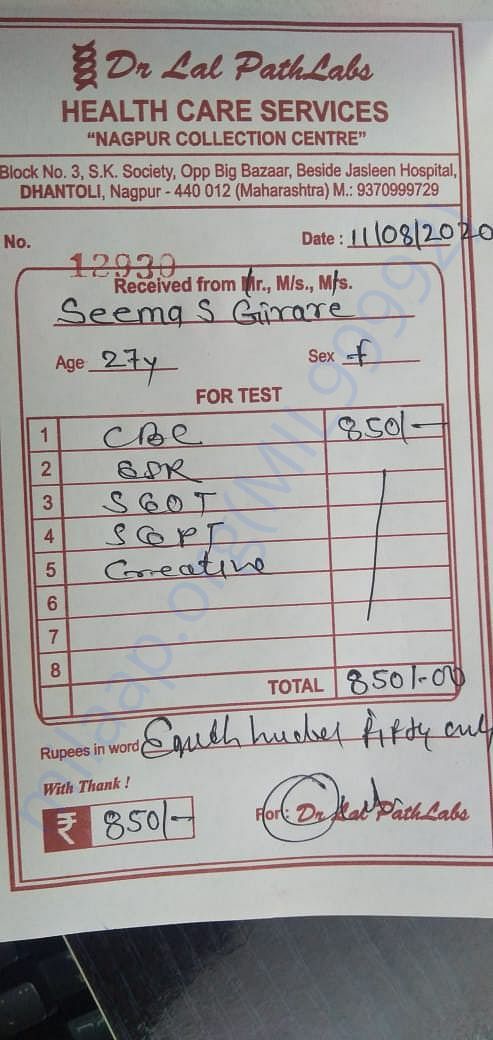 Dr Lal PathLabs
HEALTH CARE SERVICES
"NAGPUR COLLECTION CENTRE"
Block No. 3, S.K. Society, Opp Big Bazaar, Beside Jasleen Hospital,
DHANTOLI, Nagpur - 440 012 (Maharashtra) M.: 9370999729
No. 12930 Date : 11/08/2020
Received from Mr., M/s., M/s.
Seema S Girare
Age 27y Sex f
FOR TEST
1 CBC 850/-
2 ESR
3 SGOT
4 SGPT
5 Creatine
6
7
8
TOTAL 850/-00
Rupees in word fifty only
With Thank !
₹ 850/- For : Dr Lal PathLabs
milaap.org(MIL99992)